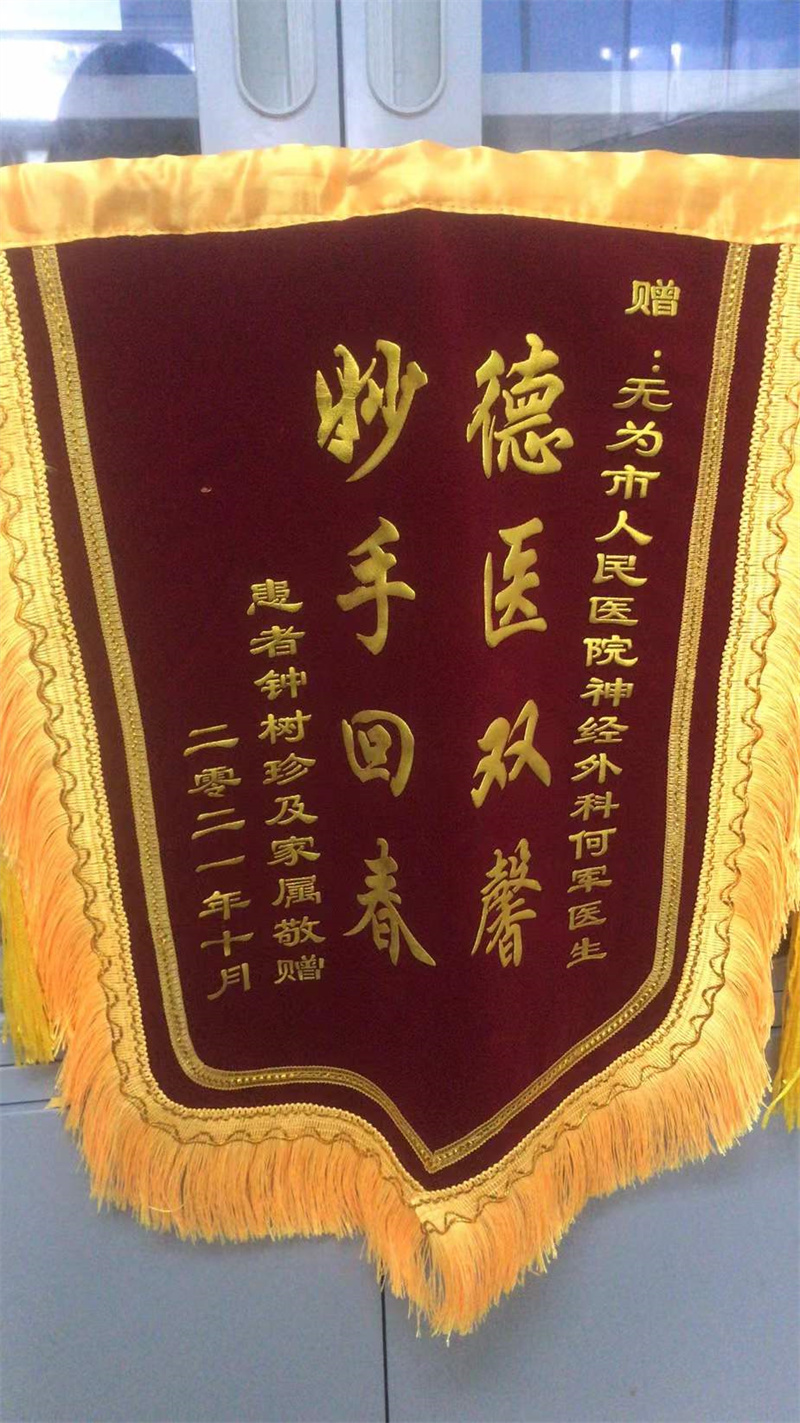 赠：无为市人民医院神经外科何军医生
德医双馨
妙手回春
患者钟树珍及家属敬赠
二零二一年十月